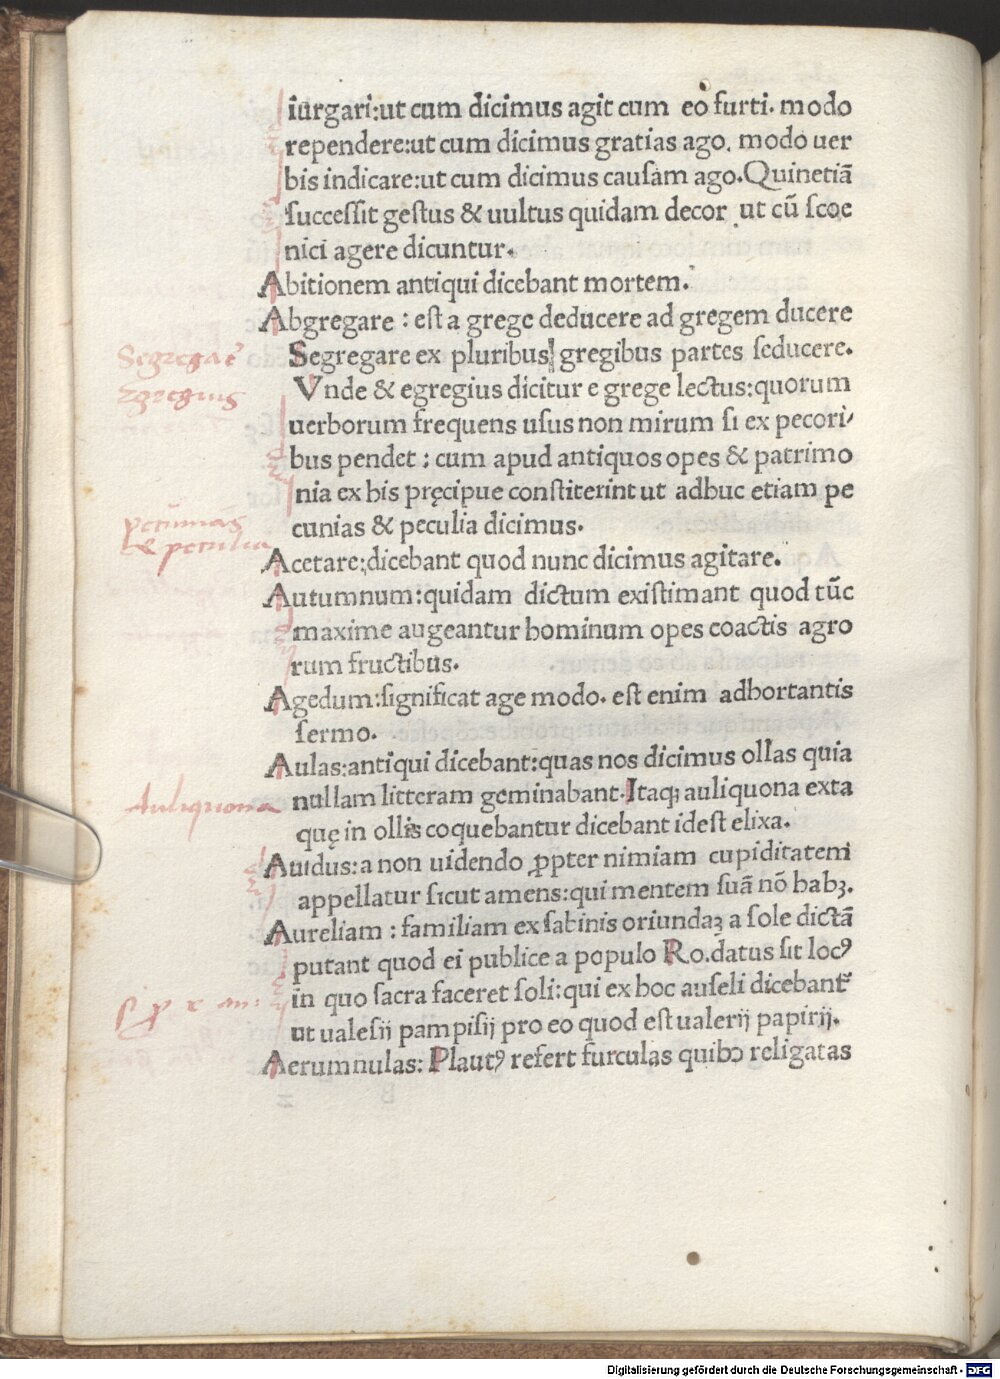 iurgari:ut cum dicimus agit cum eo furti. modo
rependere:ut cum dicimus gratias ago. modo uer
bis indicare:ut cum dicimus cauſam ago.Quinetiã
ſucceſſit geſtus & uultus quidam decor ut cũ ſcœ
nici agere dicuntur.
Abitionem antiqui dicebant mortem.
Abgregare : eſt a grege deducere ad gregem ducere
Segregare ex pluribus gregibus partes ſeducere.
Segregar̃
Vnde & egregius dicitur e grege lectus:quorum
Egregius
uerborum frequens uſus non mirum ſi ex pecori/
bus pendet : cum apud antiquos opes & patrimo
nia ex his pręcipue conſtiterint ut adhuc etiam pe
cunias & peculia dicimus.
pecunias
& peculia
Acetare:dicebant quod nunc dicimus agitare.
Autumnum:quidam dictum exiſtimant quod tũc
maxime augeantur hominum opes coactis agro
rum fructibus.
Agedum:ſignificat age modo. eſt enim adhortantis
ſermo.
Aulas:antiqui dicebant:quas nos dicimus ollas quia
nullam litteram geminabant.Itaqꝫ auliquona exta
Auliquona
quę in ollis coquebantur dicebant ideſt elixa.
Auidus:a non uidendo ꝓpter nimiam cupiditatem
appellatur ſicut amens:qui mentem ſuã nõ habꝫ.
Aureliam : familiam ex ſabinis oriundaꝫ a ſole dictã
putant quod ei publice a populo Ro.datus ſit locꝰ
in quo ſacra faceret ſoli:qui ex hoc auſeli dicebant᷑
ut ualeſij pampiſij pro eo quod eſt ualerij papirij.
Aerumnulas: Plautꝰ refert furculas quibꝰ religatas
Digitalisierung gefördert durch die Deutsche Forschungsgemeinschaft - DFG